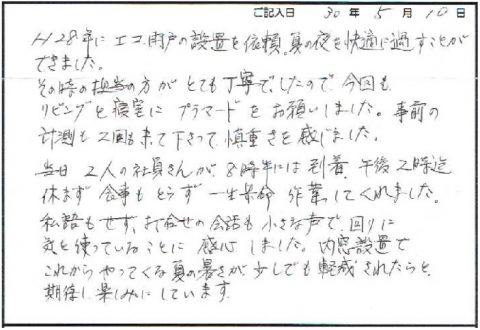 ご記入日 30年 5月 10日
H28年に エコ雨戸の設置を依頼。夏の夜を快適に過すことが
できました。
その時の担当の方が とても丁寧でしたので、今回も
リビングと寝室に プラマードを お願いしました。 事前の
計測も 2回も来て下さって 慎重さを感じました。
当日 2人の社員さんが、8時半には 到着、午後2時迄
休まず 食事も とらず 一生懸命 作業してくれました。
私語もせず、打合せの会話も 小さな声で 回りに
気を使っていることに 感心しました。 内窓設置で
これから やってくる 夏の暑さが 少しでも 軽減されたらと
期待し 楽しみにしています。